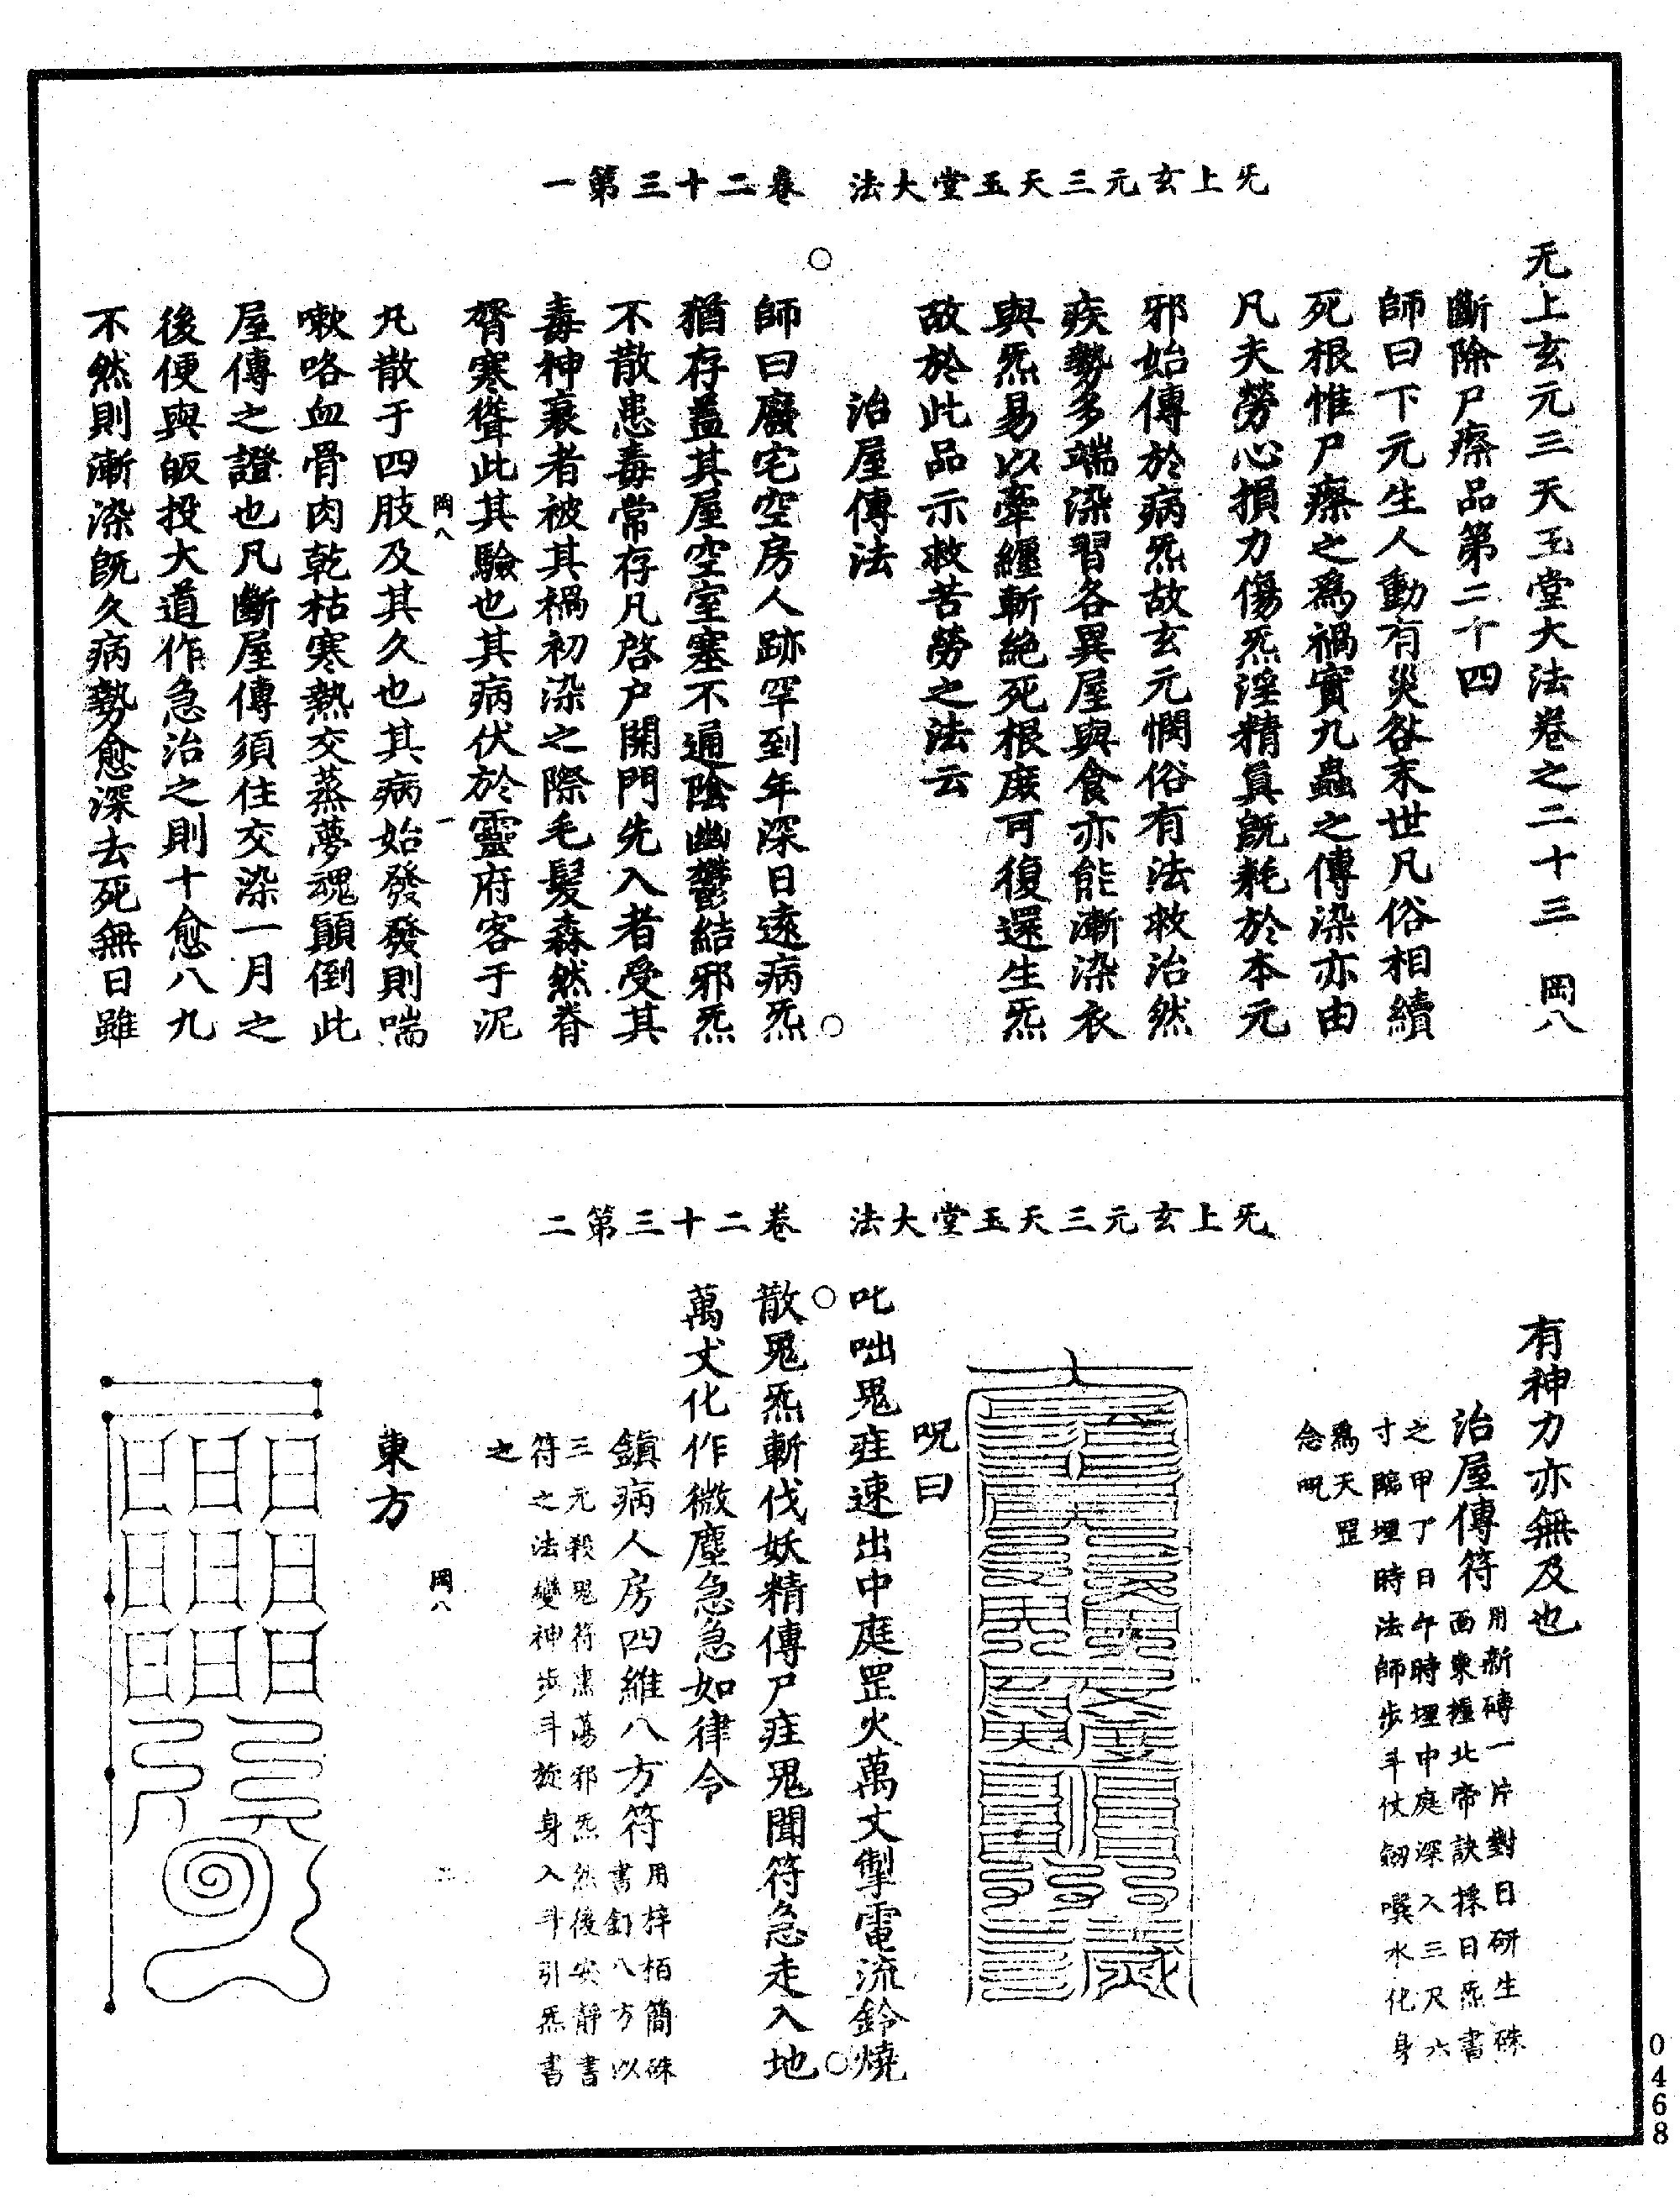 一第三十二卷　法大堂玉天三元玄上旡
无上玄元三天玉堂大法卷之二十三　岡八
斷除尸瘵品第二十四
師曰下元生人動有災咎末世凡俗相續
死根惟尸瘵之爲禍實九蟲之傳染亦由
凡夫勞心損力傷炁淫精眞旣耗於本元
邪始傳於病炁故玄元憫俗有法救治然
疾勢多端染習各異屋與食亦能漸染衣
與炁易以牽纏斬絕死根庶可復還生炁
故於此品示救苦勞之法云
治屋傳法
師曰廢宅空房人跡罕到年深日遠病炁
猶存蓋其屋空室塞不通陰幽鬱結邪炁
不散患毒常存凡啓戶開門先入者受其
毒神衰者被其禍初染之際毛髮森然脊
膂寒聳此其驗也其病伏於靈府客于泥
岡八　一
丸散于四肢及其久也其病始發發則喘
嗽咯血骨肉乾枯寒熱交蒸夢魂顛倒此
屋傳之證也凡斷屋傳須住交染一月之
後便與皈投大道作急治之則十愈八九
不然則漸染旣久病勢愈深去死無日雖
二第三十二卷　法大堂玉天三元玄上旡
有神力亦無及也
治屋傳符
用新磚一片對日研生硃
面東握北帝訣採日炁書
之甲丁日午時埋中庭深入三尺六
寸臨埋時法師步斗仗劒噀水化身
爲天罡
念呪
呪曰
叱咄鬼疰速出中庭罡火萬丈掣電流鈴燒
散鬼炁斬伐妖精傳尸疰鬼聞符急走入地
萬丈化作微塵急急如律令
鎮病人房四維八方符
用梓栢簡硃
書釘八方以
三元殺鬼符肅蕩邪炁然後安靜書
符之法變神步斗旋身入斗引炁書
之
岡八　二
東方
0468